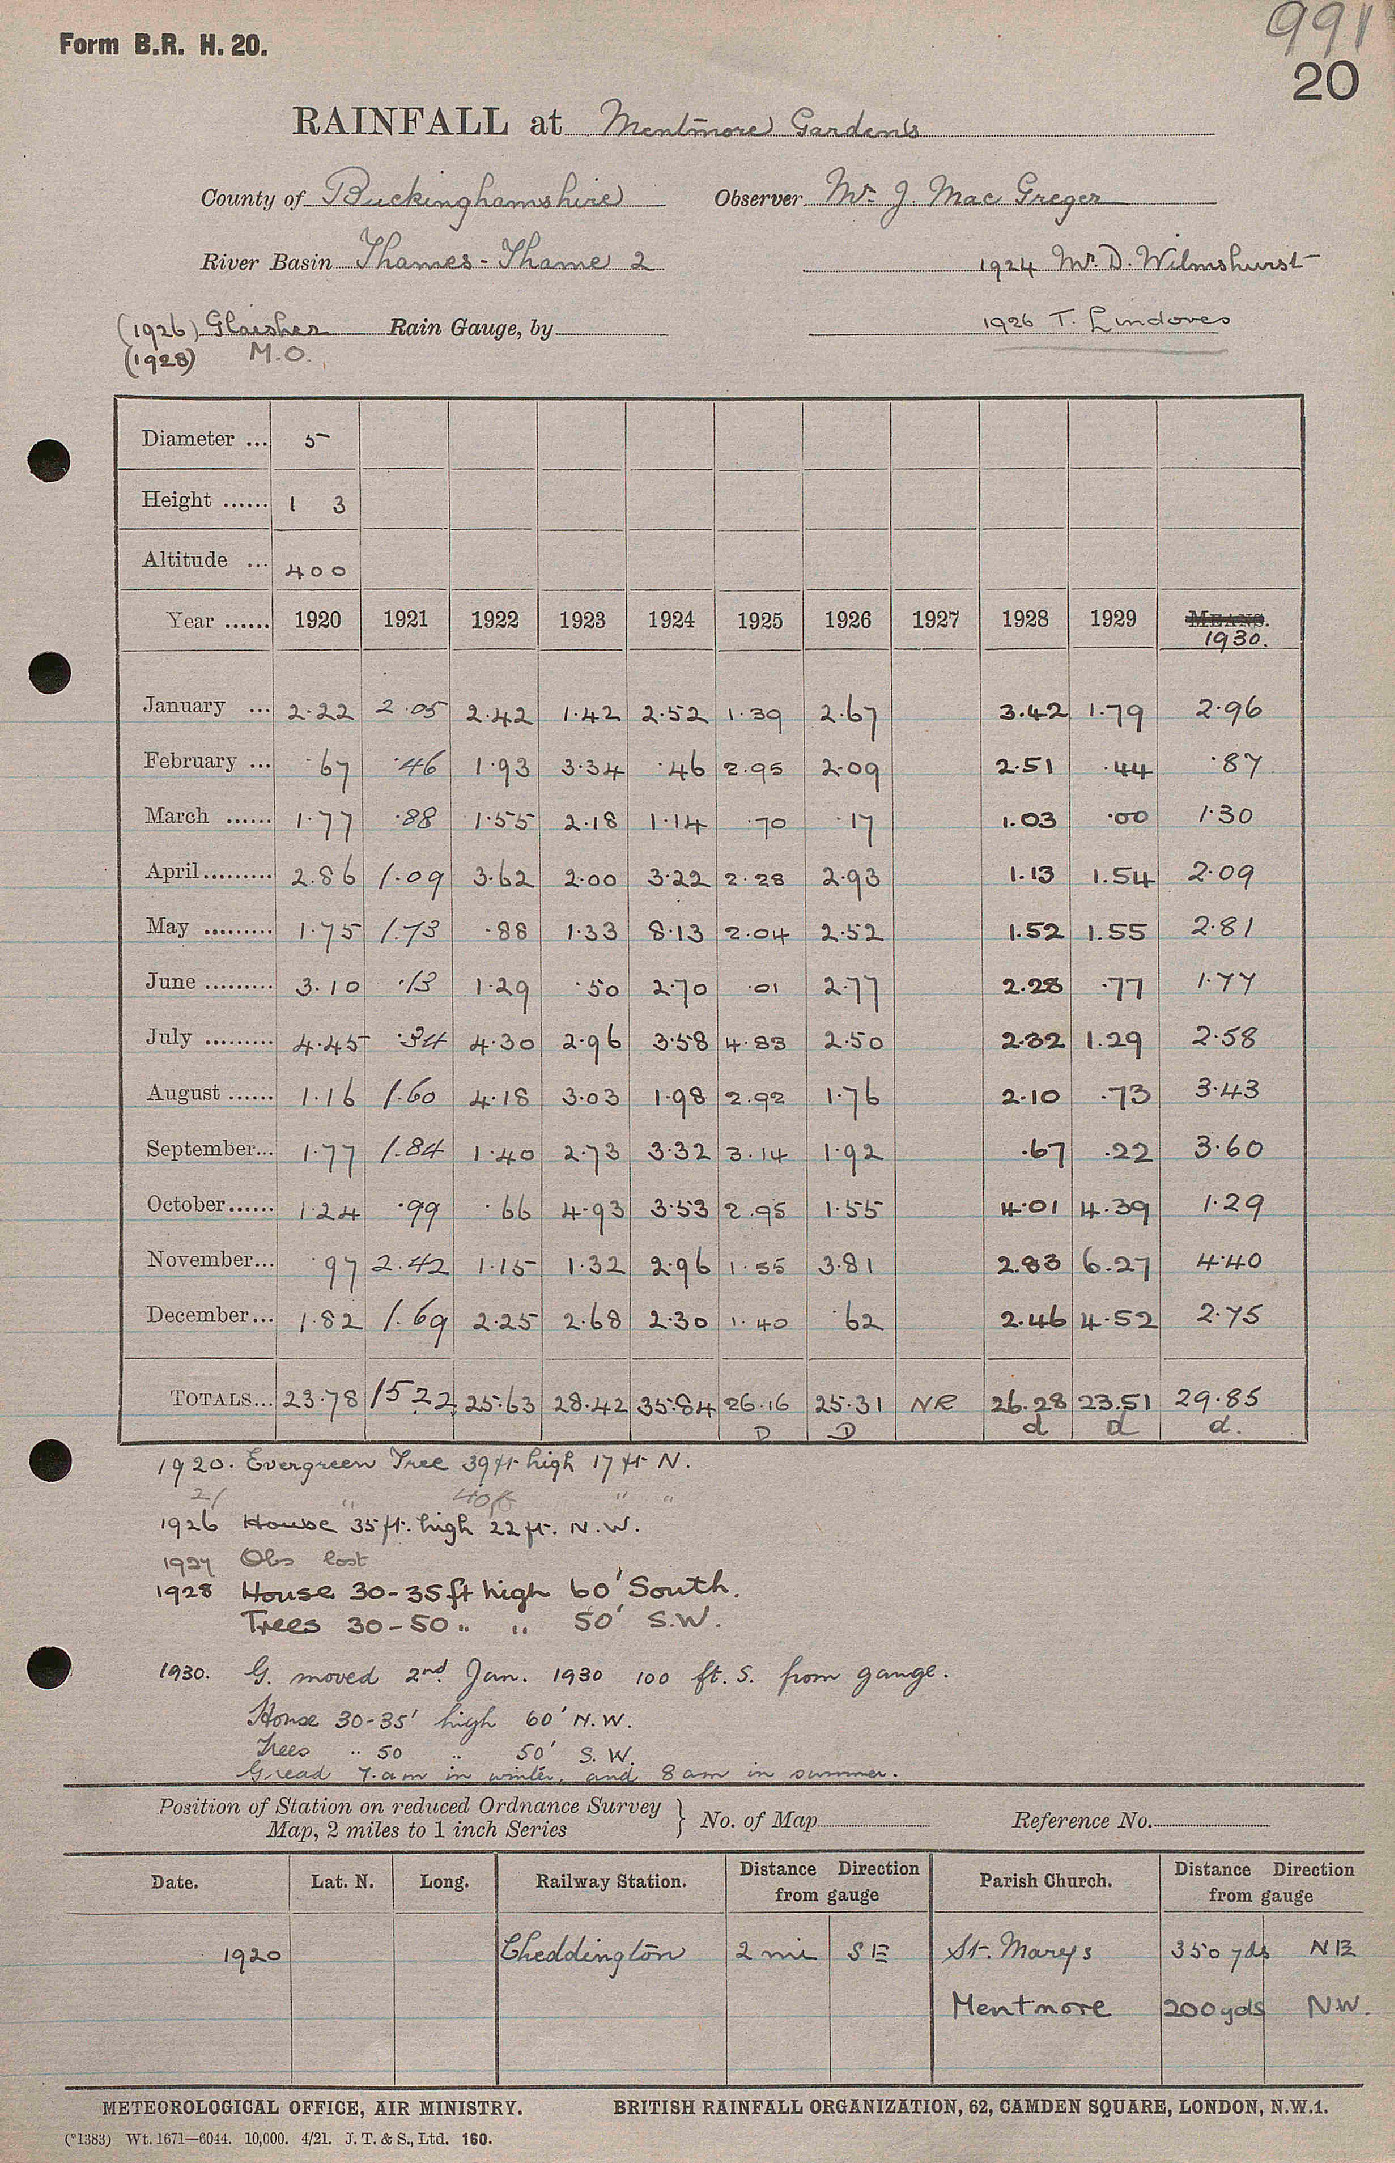 991
Form B.R. H. 20.
20
RAINFALL at Mentmore Gardens
County of Buckinghamshire Observer Mr. J. Mac Greger
River Basin Thames - Thame 2 1924 Mr. D. Wilmshurst
(1926) Glaisher Rain Gauge, by 1926 T. Lindores
(1928) M.O.
Diameter ... 5
Height ...... 1 3
Altitude ... 400
Year ...... 1920 1921 1922 1923 1924 1925 1926 1927 1928 1929 MEANS.
1930.
January ... 2.22 2.05 2.42 1.42 2.52 1.39 2.67 3.42 1.79 2.96
February ... .67 .46 1.93 3.34 .46 2.95 2.09 2.51 .44 .87
March ...... 1.77 .88 1.55 2.18 1.14 .70 .17 1.03 .00 1.30
April ......... 2.86 1.09 3.62 2.00 3.22 2.28 2.93 1.13 1.54 2.09
May ......... 1.75 1.73 .88 1.33 8.13 2.04 2.52 1.52 1.55 2.81
June ......... 3.10 .13 1.29 .50 2.70 .01 2.77 2.28 .77 1.77
July ......... 4.45 .34 4.30 2.96 3.58 4.83 2.50 2.32 1.29 2.58
August ...... 1.16 1.60 4.18 3.03 1.98 2.92 1.76 2.10 .73 3.43
September... 1.77 1.84 1.40 2.73 3.32 3.14 1.92 .67 .22 3.60
October...... 1.24 .99 .66 4.93 3.53 2.95 1.55 4.01 4.39 1.29
November... .97 2.42 1.15 1.32 2.96 1.55 3.81 2.83 6.27 4.40
December... 1.82 1.69 2.25 2.68 2.30 1.40 .62 2.46 4.52 2.75
TOTALS... 23.78 15.22 25.63 28.42 35.84 26.16 25.31 NR 26.28 23.51 29.85
D D d d d.
1920. Evergreen Tree 39 ft high 17 ft N.
21 " 40ft " "
1926 House 35 ft. high 22 ft. N.W.
1927 Obs lost
1928 House 30-35 ft high 60' South.
Trees 30-50 " " 50' S.W.
1930. G. moved 2nd Jan. 1930 100 ft. S. from gauge.
House 30-35' high 60' N.W.
Trees " 50 " 50' S.W.
G. read 7 am in winter, and 8 am in summer.
Position of Station on reduced Ordnance Survey } No. of Map Reference No.
Map, 2 miles to 1 inch Series
Date. Lat. N. Long. Railway Station. Distance Direction from gauge Parish Church. Distance Direction from gauge
1920 Cheddington 2 mi SE St. Marys 350 yds NE
Mentmore 200 yds N.W.
METEOROLOGICAL OFFICE, AIR MINISTRY. BRITISH RAINFALL ORGANIZATION, 62, CAMDEN SQUARE, LONDON, N.W.1.
(*1383) Wt. 1671—6044. 10,000. 4/21. J. T. & S., Ltd. 160.